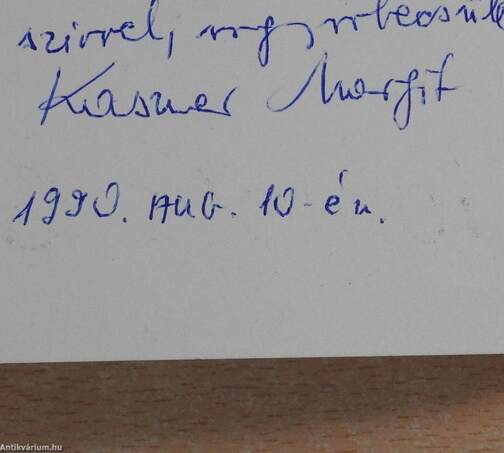 szívvel, nagyrabecsülé
Kasner Margit
1990. AUG. 10-én.
Antikvárium.hu